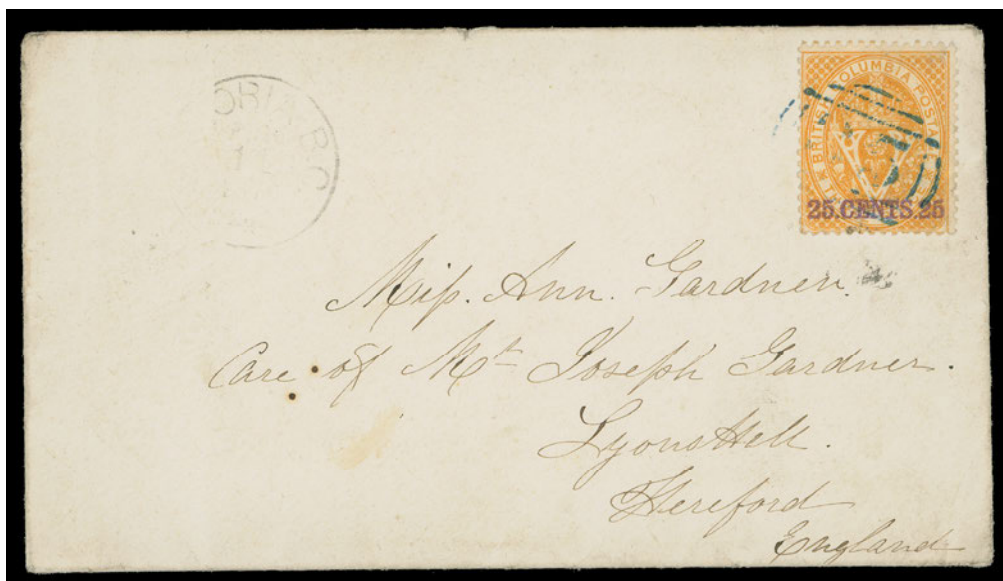 ORIA B.C
BRITISH COLUMBIA POSTA
25.CENTS.25
Miss. Ann. Gardner.
Care of Mr Joseph Gardner.
Lyonshell.
Hereford
England